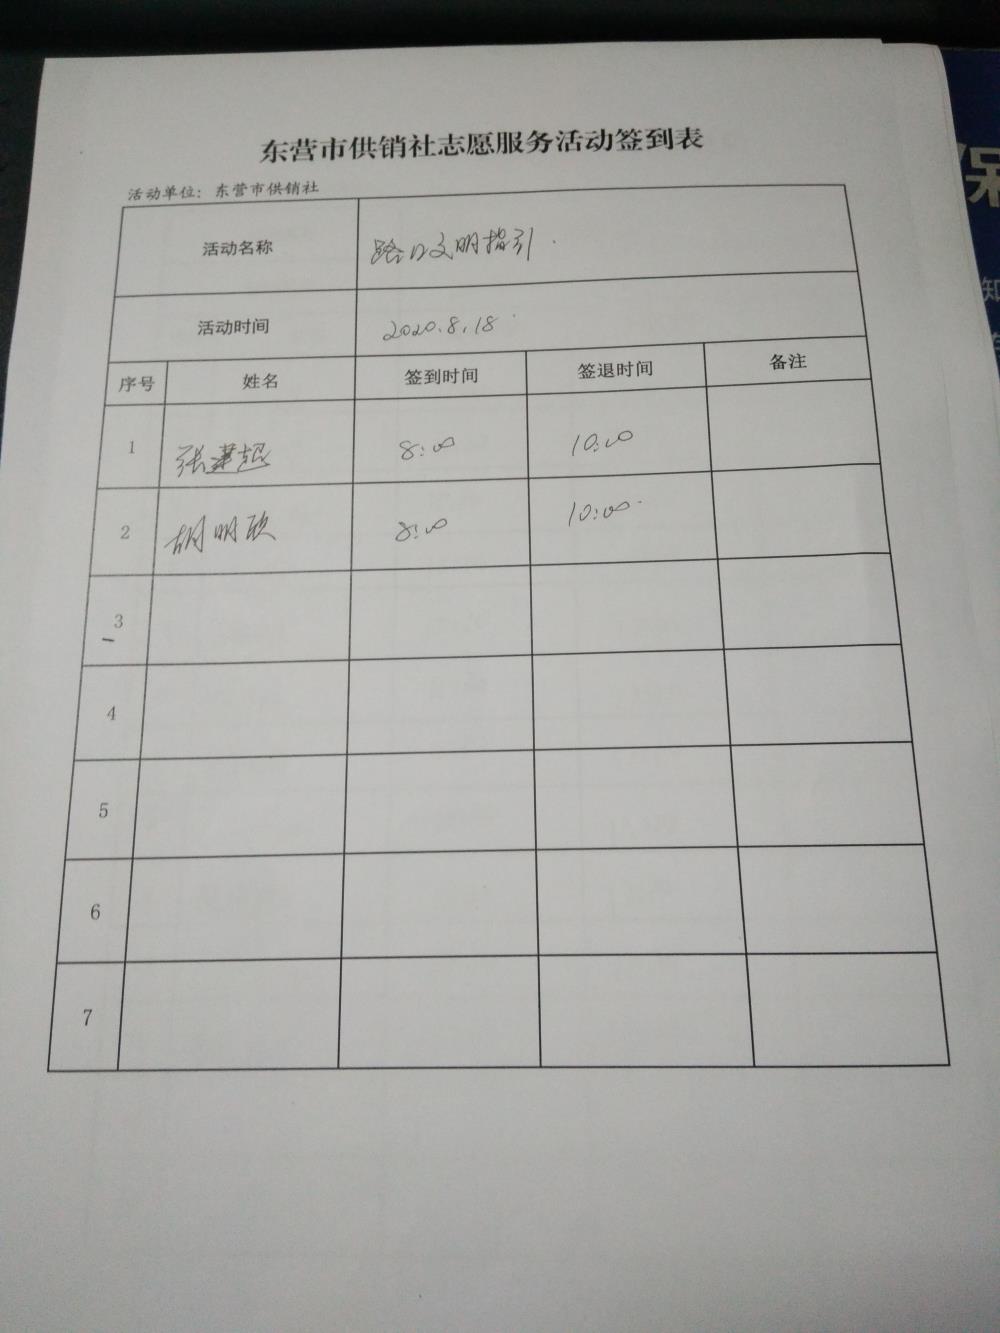 东营市供销社志愿服务活动签到表
活动单位：东营市供销社
活动名称 路口文明指引
活动时间 2020.8.18
序号 姓名 签到时间 签退时间 备注
1 张建超 8:00 10:00
2 胡明欣 8:00 10:00
3
4
5
6
7
保
知